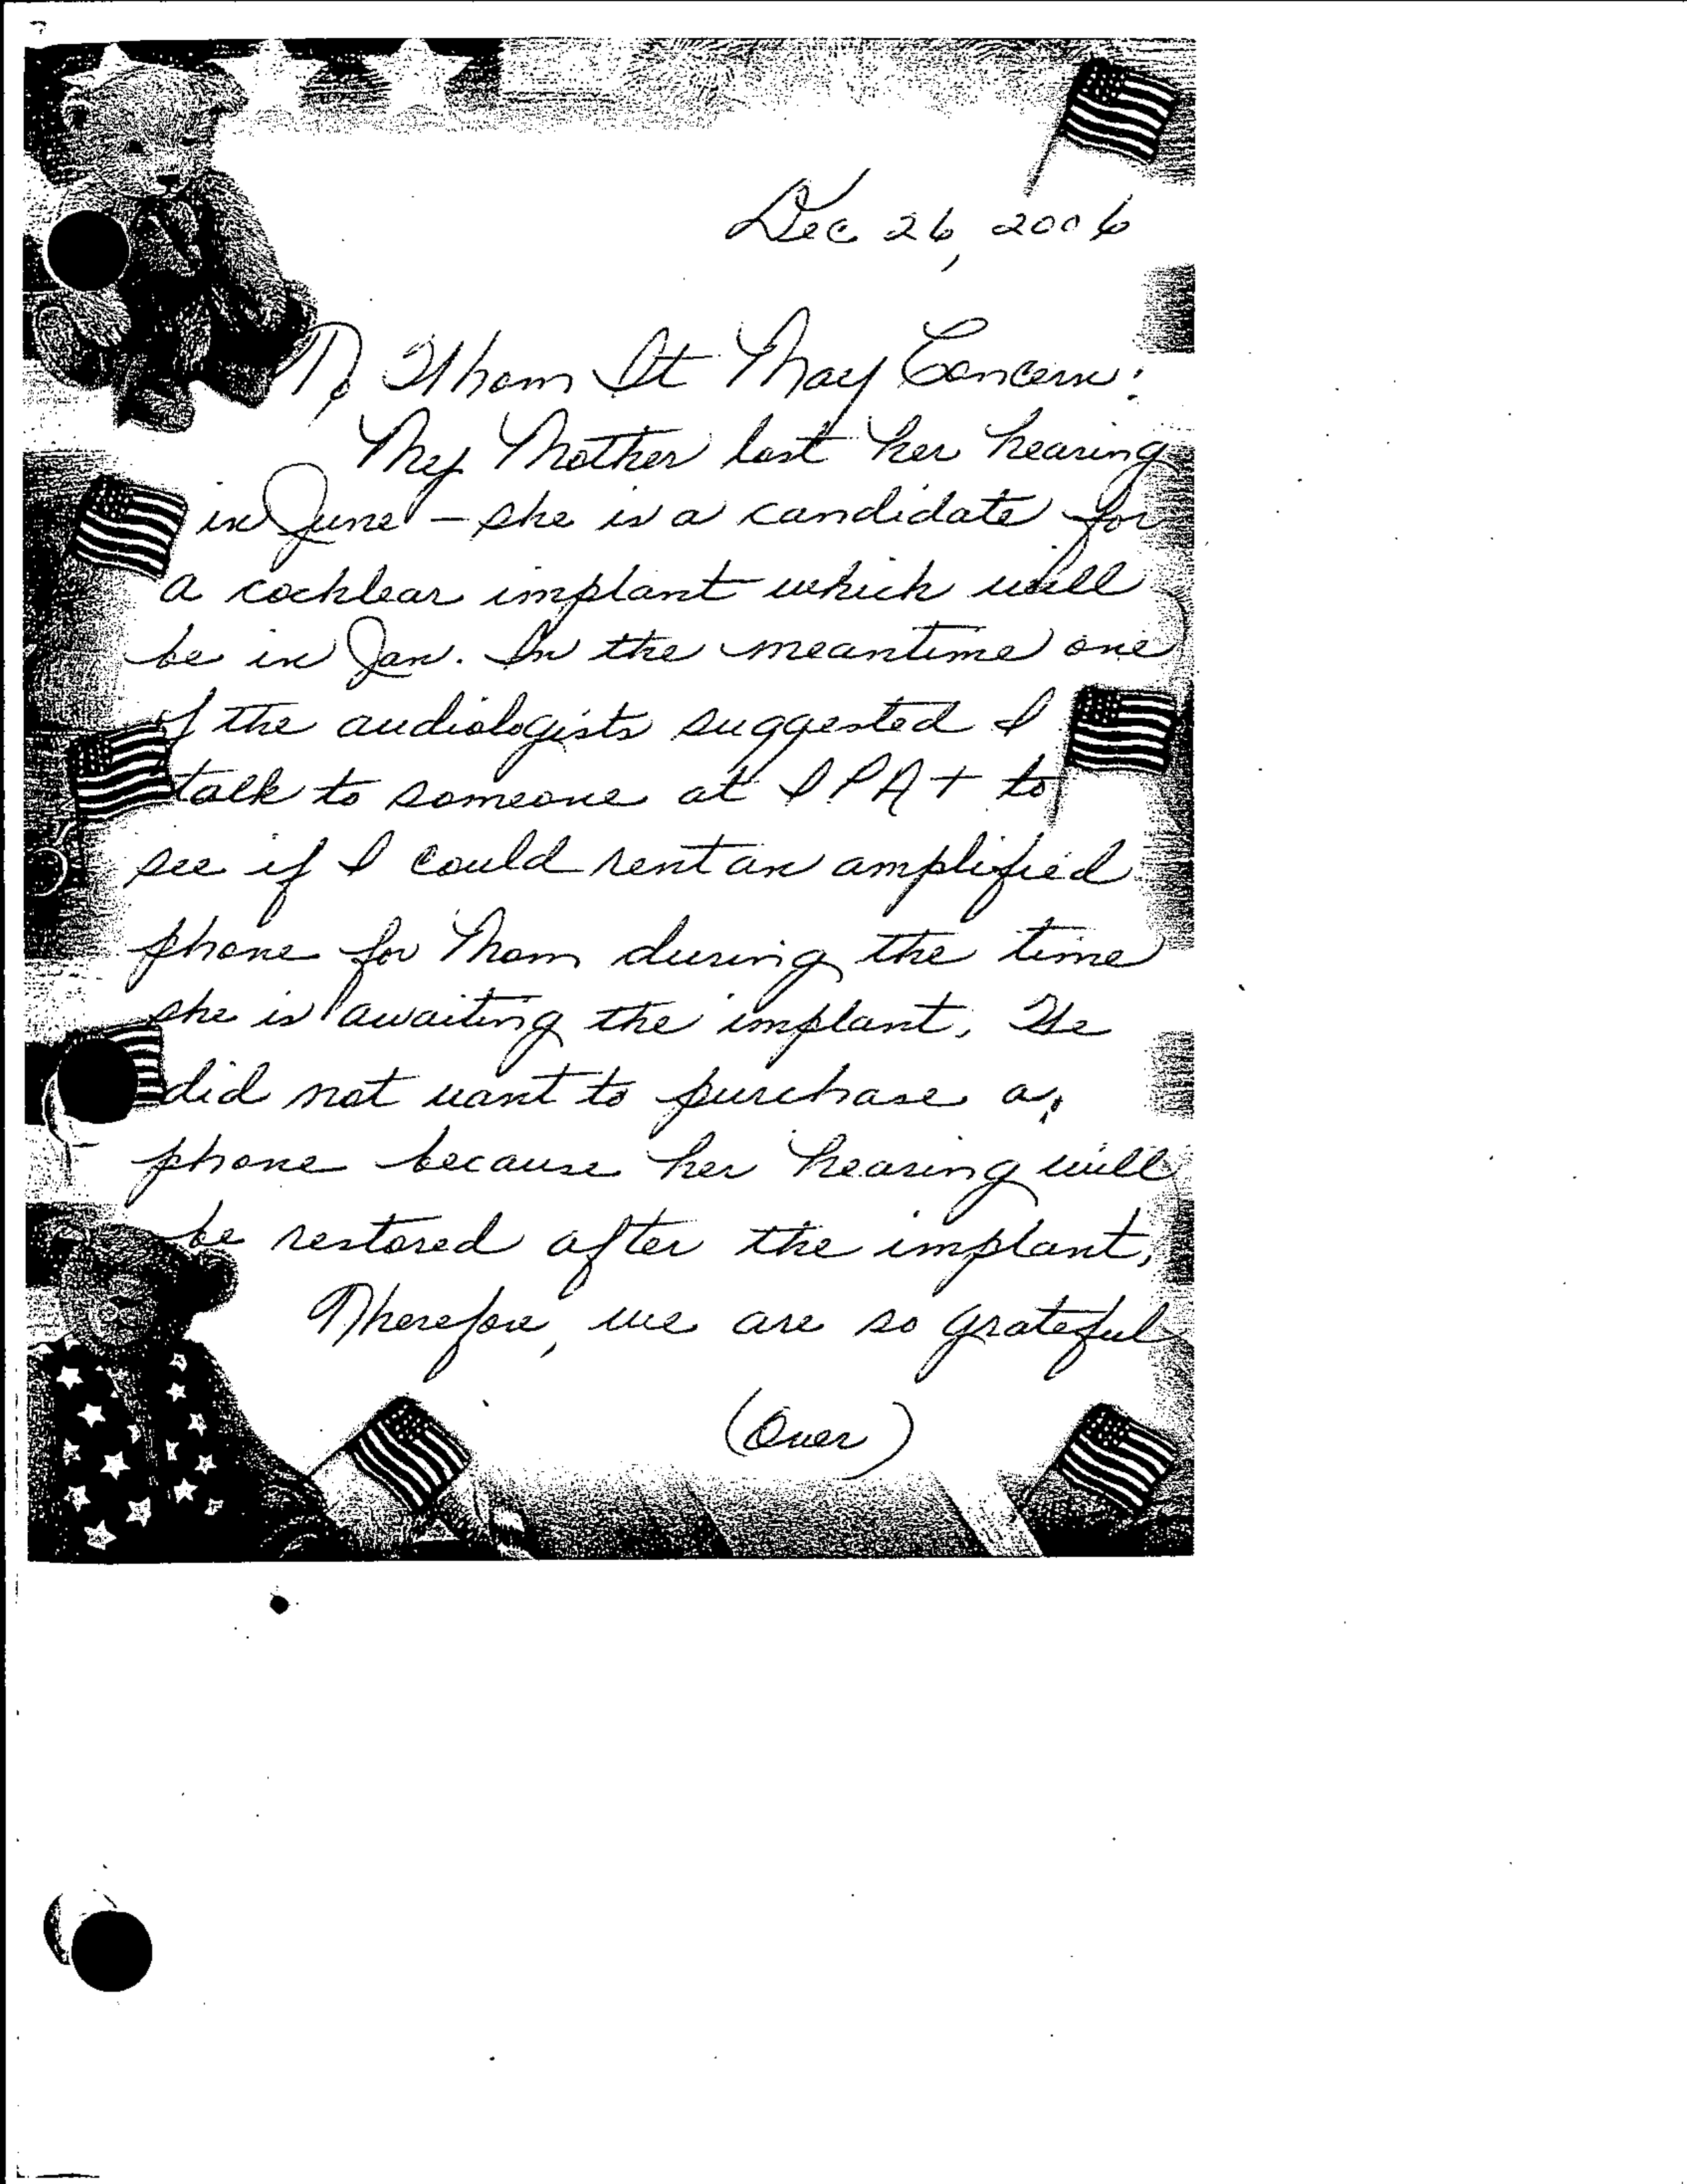 Dec 26, 2006
To Whom It May Concern:
My Mother lost her hearing
in June - she is a candidate for
a cochlear implant which will
be in Jan. In the meantime one
of the audiologists suggested I
talk to someone at IPAT to
see if I could rent an amplified
phone for Mom during the time
she is awaiting the implant. We
did not want to purchase a
phone because her hearing will
be restored after the implant.
Therefore, we are so grateful
(Over)